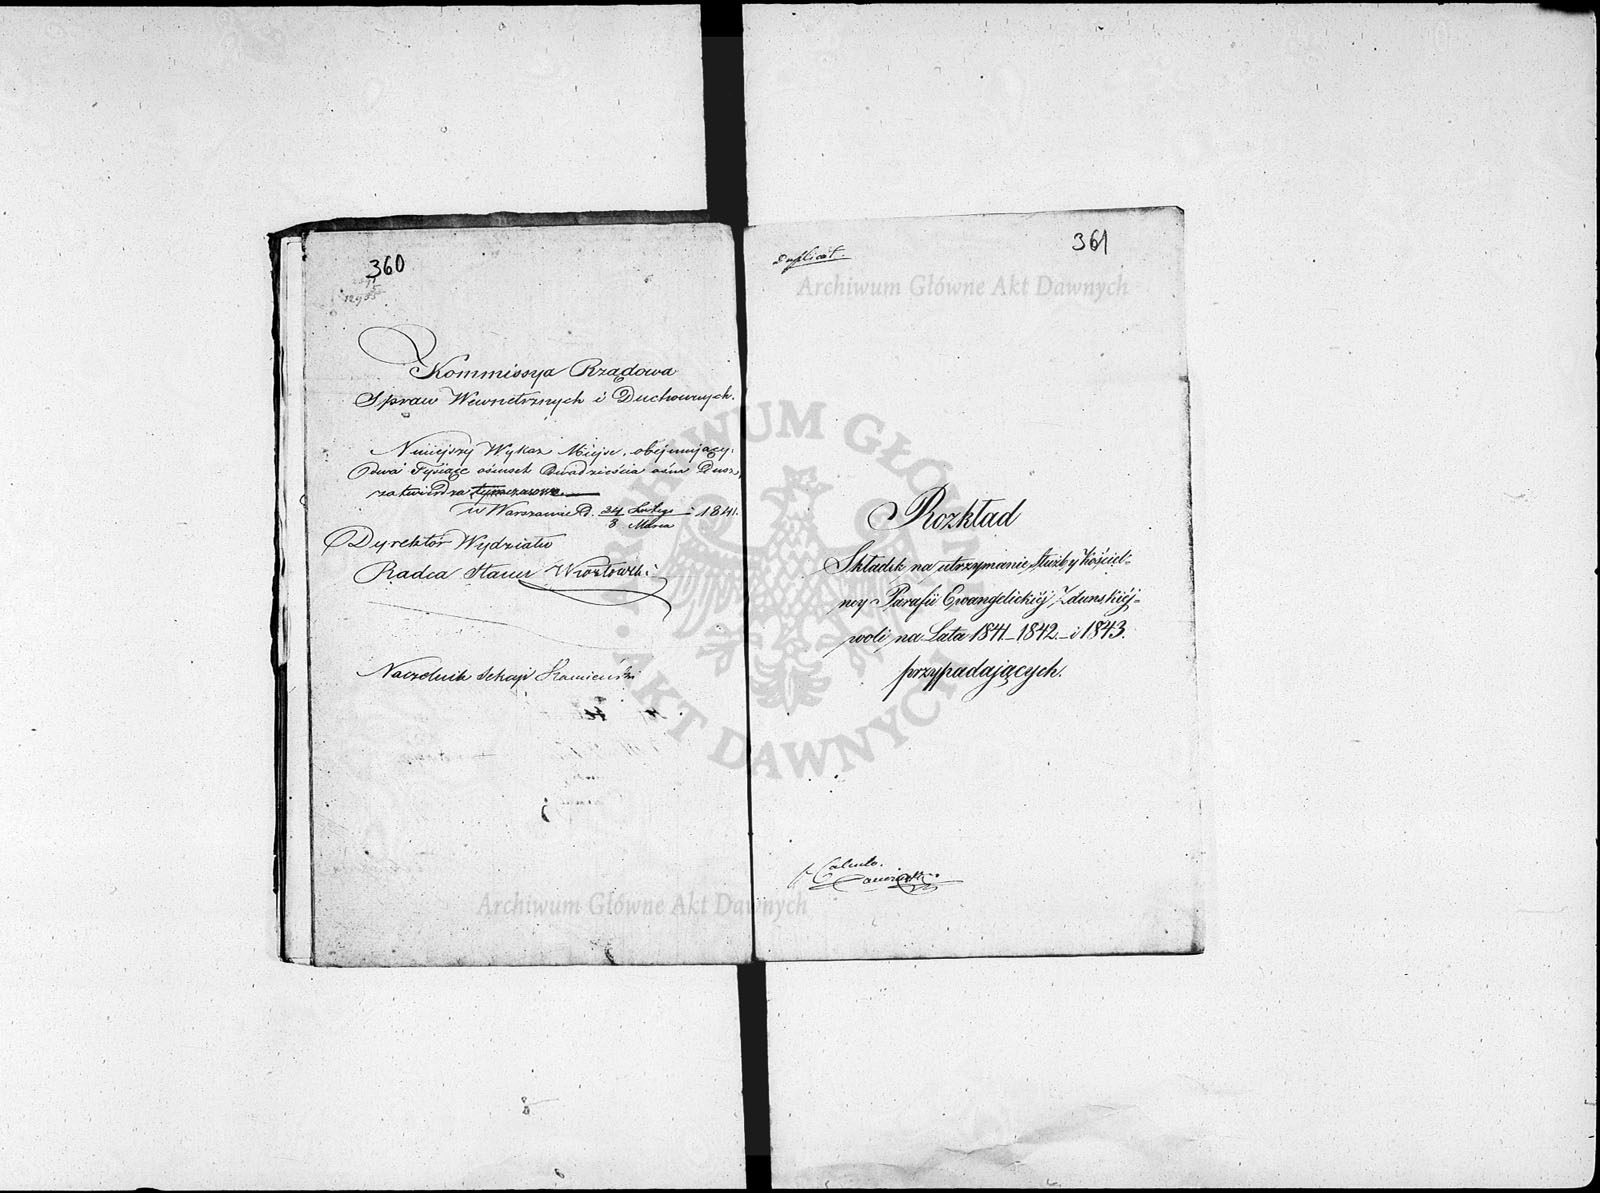 360
Kommissya Rządowa
Spraw Wewnetrznych i Duchownych.
Niniejszy Wykaz Miejsc, obejmujący
Dwa Tysiące ośmset Dwadzieścia ośm Dusz,
zatwierdza tymczasowo
w Warszawie D. 24 Lutego 1841.
8 Marca
Dyrektór Wydziału
Radca Stanu
Naczelnik Sekcji
361
Duplicat.
Rozkład
Składek na utrzymanie służby kościel=
ney Parafii Ewangelickiéj Zdunskiéj=
woli na Lata 1841.–1842.–i 1843.
przypadających.
Calculo.
Archiwum Główne Akt Dawnych
Archiwum Główne Akt Dawnych
ARCHIWUM GŁÓWNE
AKT DAWNYCH